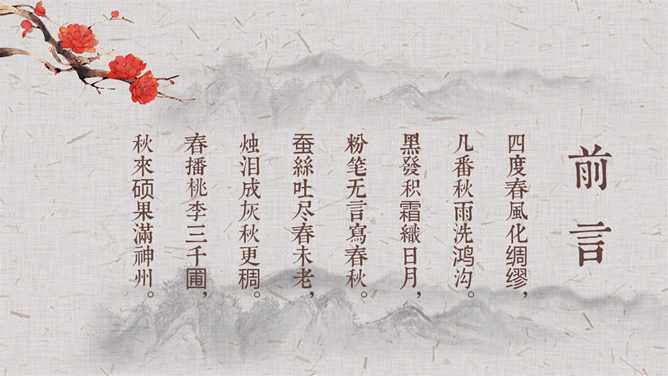 前言
四度春風化绸缪，
几番秋雨洗鸿沟。
黑發积霜織日月，
粉笔无言寫春秋。
蚕絲吐尽春未老，
烛泪成灰秋更稠。
春播桃李三千圃，
秋來硕果滿神州。